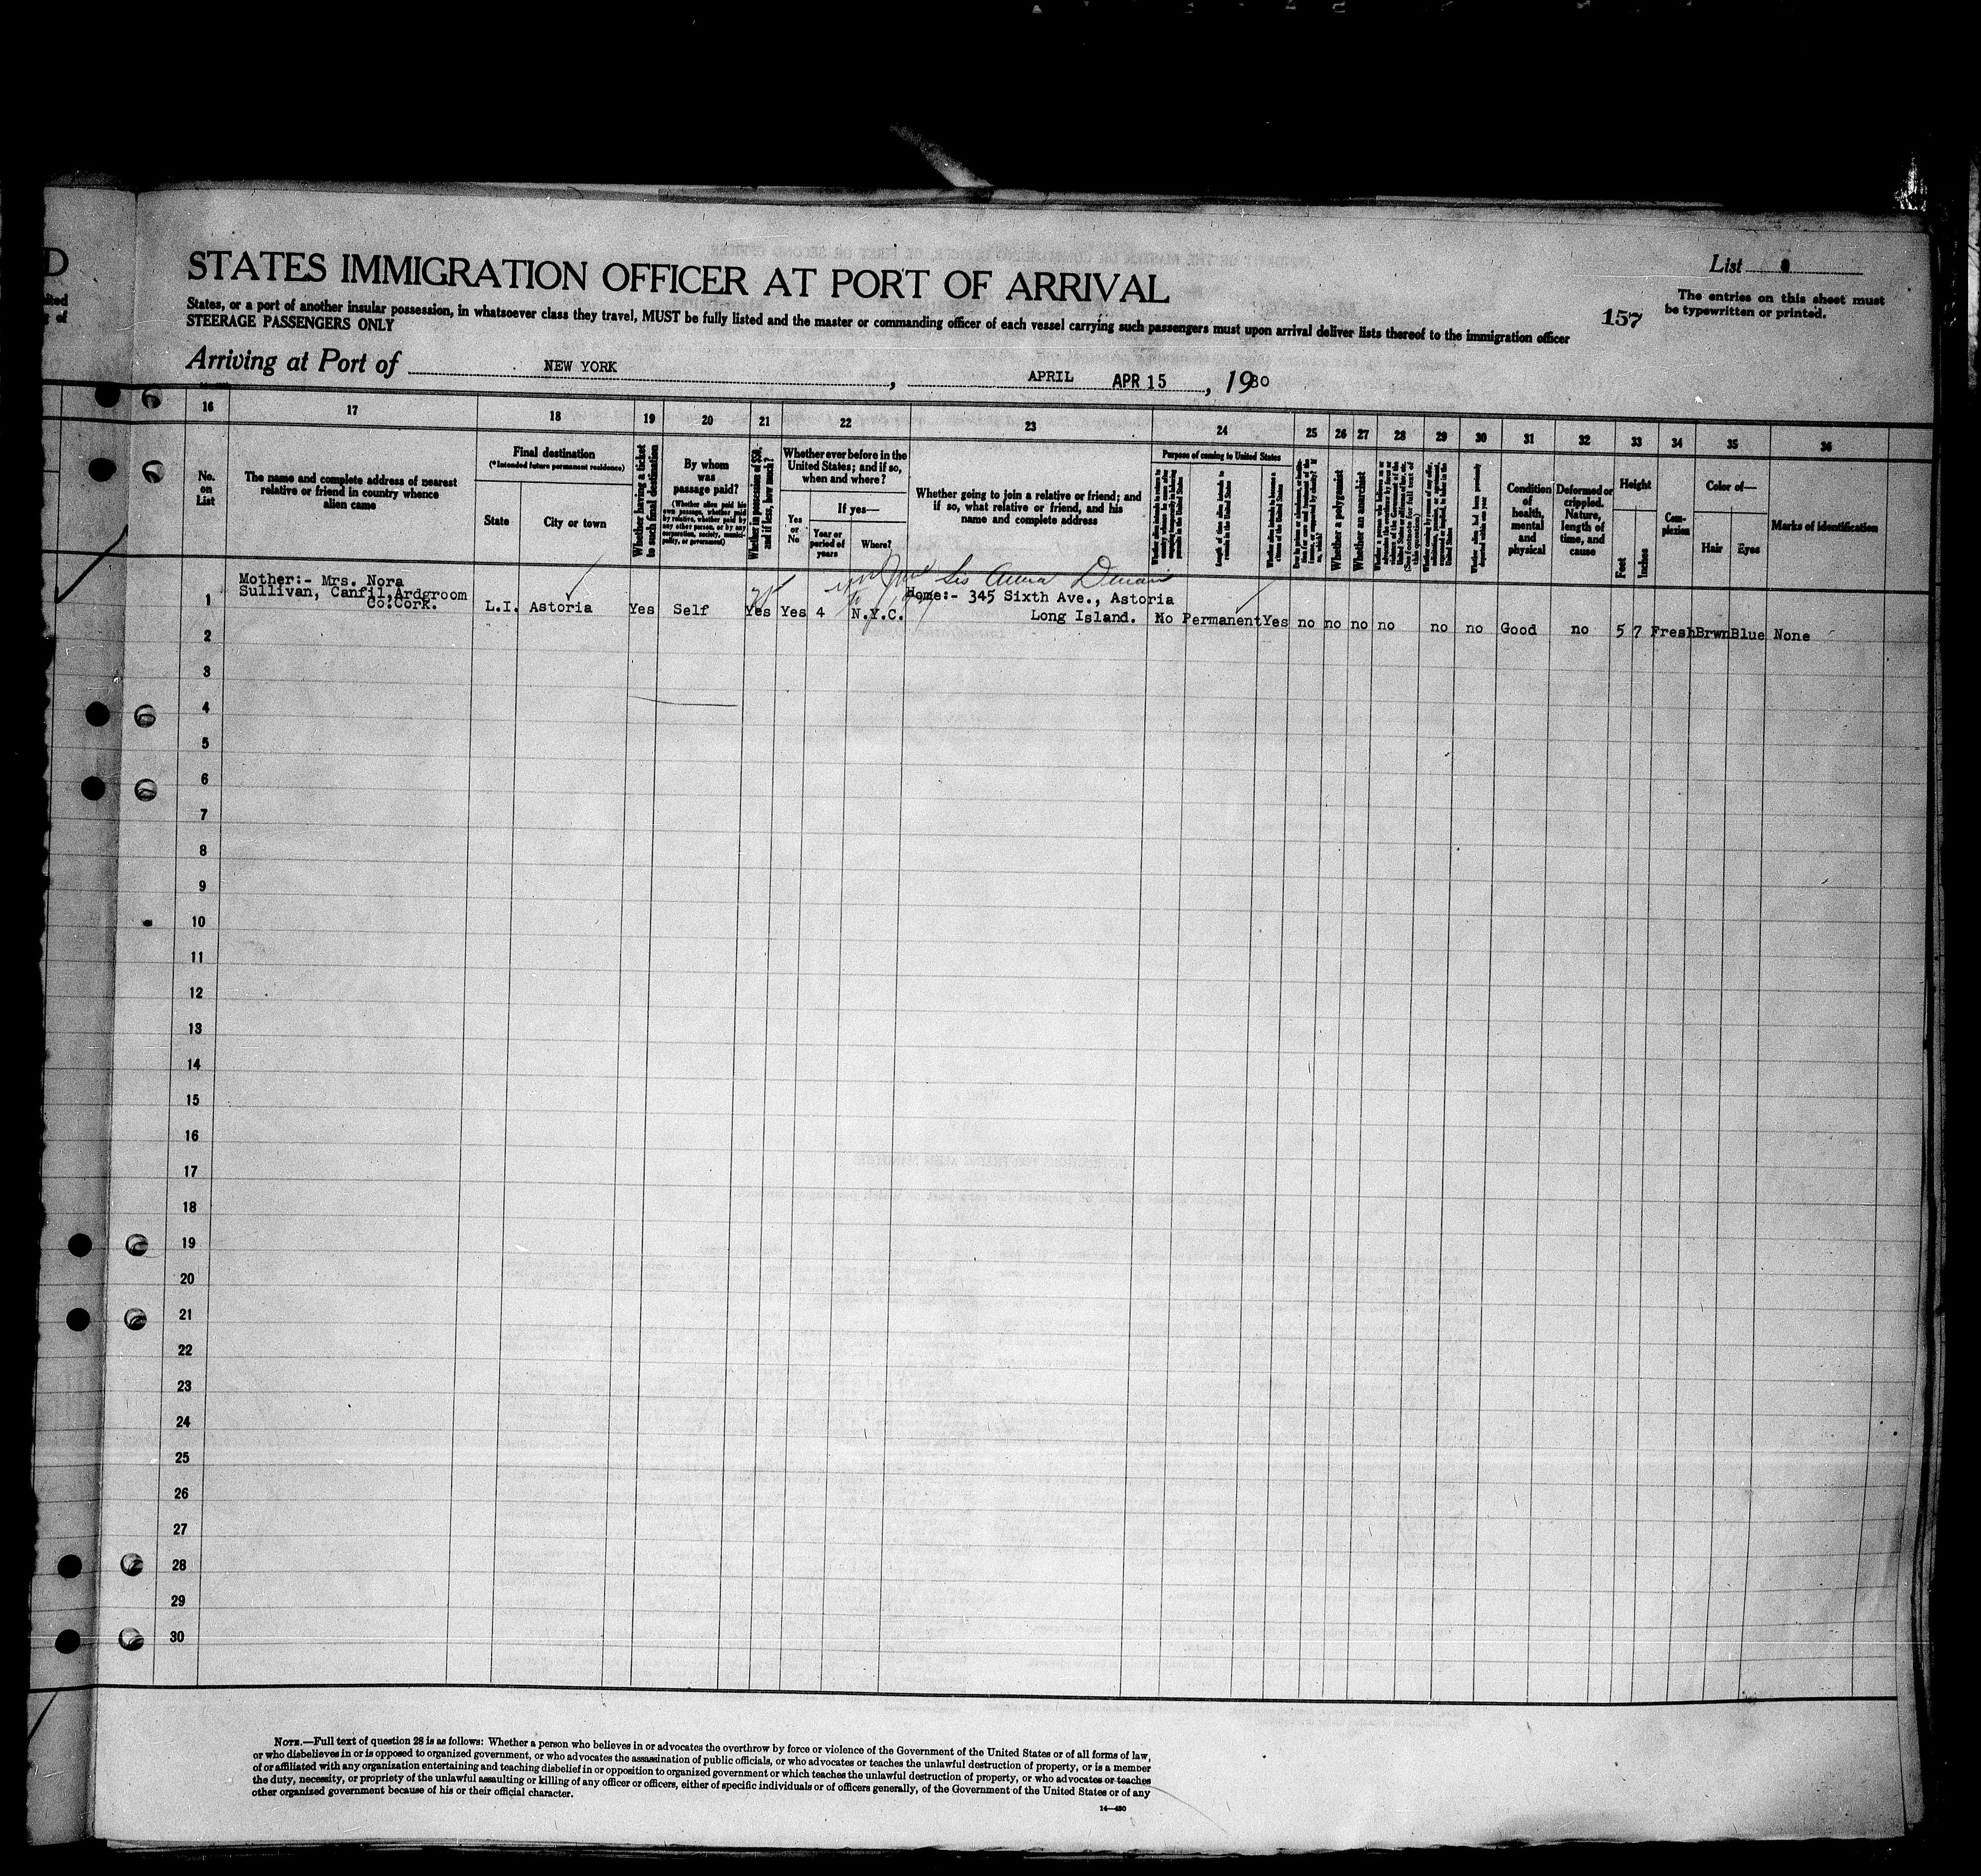 D
STATES IMMIGRATION OFFICER AT PORT OF ARRIVAL
List
The entries on this sheet must
be typewritten or printed.
157
ited
g of
States, or a port of another insular possession, in whatsoever class they travel, MUST be fully listed and the master or commanding officer of each vessel carrying such passengers must upon arrival deliver lists thereof to the immigration officer
STEERAGE PASSENGERS ONLY
Arriving at Port of NEW YORK , APRIL APR 15 , 1930
16 17 18 19 20 21 22 23 24 25 26 27 28 29 30 31 32 33 34 35 36
No.
on
List
The name and complete address of nearest
relative or friend in country whence
alien came
Final destination
(*Intended future permanent residence)
State
City or town
Whether having a ticket
to such final destination
By whom
was
passage paid?
(Whether alien paid his
own passage, whether paid
by relative, whether paid by
any other person, or by any
corporation, society, munici-
pality, or government)
Whether in possession of $50,
and if less, how much?
Whether ever before in the
United States; and if so,
when and where?
Yes
or
No
If yes—
Year or
period of
years
Where?
Whether going to join a relative or friend; and
if so, what relative or friend, and his
name and complete address
Purpose of coming to United States
Length of time alien intends to
remain in the United States
Whether alien intends to become a
citizen of the United States
Whether a polygamist
Whether an anarchist
(See footnote for full text of
this question)
Whether alien had been previously
deported within one year
Condition
of
health,
mental
and
physical
Deformed or
crippled.
Nature,
length of
time, and
cause
Height
Feet
Inches
Com-
plexion
Color of—
Hair
Eyes
Marks of identification
Sis Anna
Mother:- Mrs. Nora
Sullivan, Canfil,Ardgroom
Co:Cork.
1 L.I. Astoria Yes Self Yes Yes 4 N.Y.C.
Home:- 345 Sixth Ave., Astoria
Long Island. No Permanent Yes no no no no no no Good no 5 7 Fresh Brwn Blue None
2
3
4
5
6
7
8
9
10
11
12
13
14
15
16
17
18
19
20
21
22
23
24
25
26
27
28
29
30
NOTE.—Full text of question 28 is as follows: Whether a person who believes in or advocates the overthrow by force or violence of the Government of the United States or of all forms of law,
or who disbelieves in or is opposed to organized government, or who advocates the assassination of public officials, or who advocates or teaches the unlawful destruction of property, or is a member
of or affiliated with any organization entertaining and teaching disbelief in or opposition to organized government or which teaches the unlawful destruction of property, or who advocates or teaches
the duty, necessity, or propriety of the unlawful assaulting or killing of any officer or officers, either of specific individuals or of officers generally, of the Government of the United States or of any
other organized government because of his or their official character.
14—430